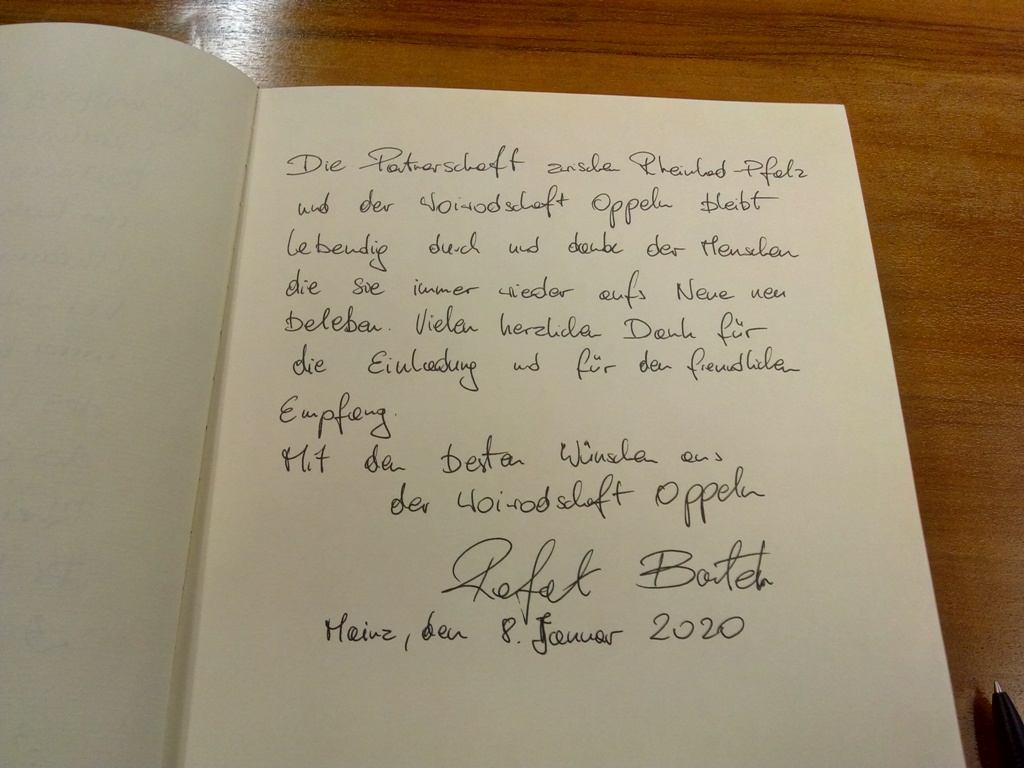 Die Partnerschaft zwischen Rheinland-Pfalz
und der Woiwodschaft Oppeln bleibt
lebendig durch und danke der Menschen
die sie immer wieder aufs Neue neu
beleben. Vielen herzlichen Dank für
die Einladung und für den freundlichen
Empfang.
Mit den besten Wünschen aus
der Woiwodschaft Oppeln
Rafał Bartek
Mainz, den 8. Januar 2020